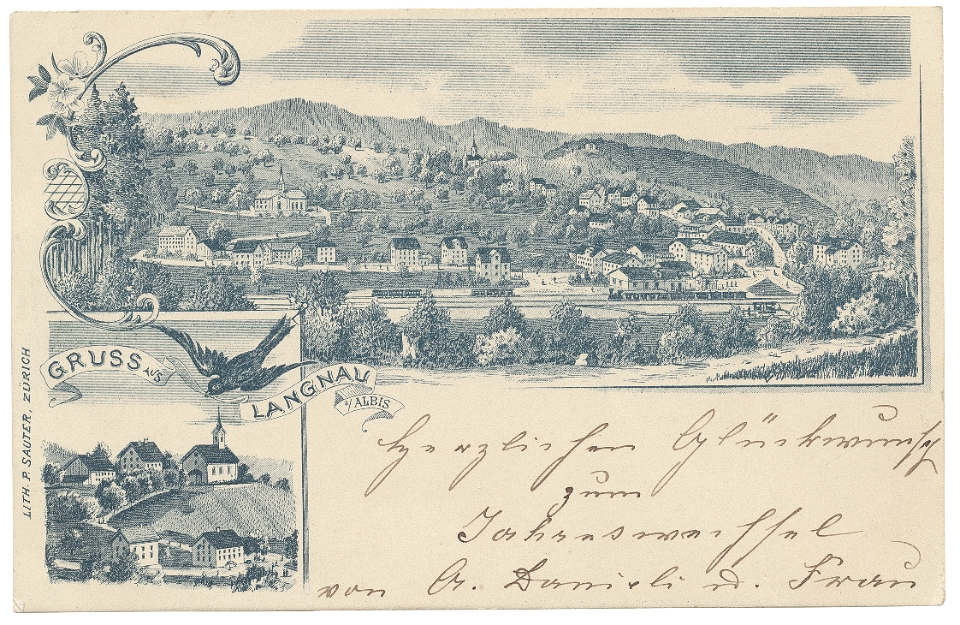 GRUSS AUS
LANGNAU
a/ALBIS
LITH. P. SAUTER, ZÜRICH
Herzlichen Glückwunsch
zum
Jahreswechsel
von A. Danieli u. Frau